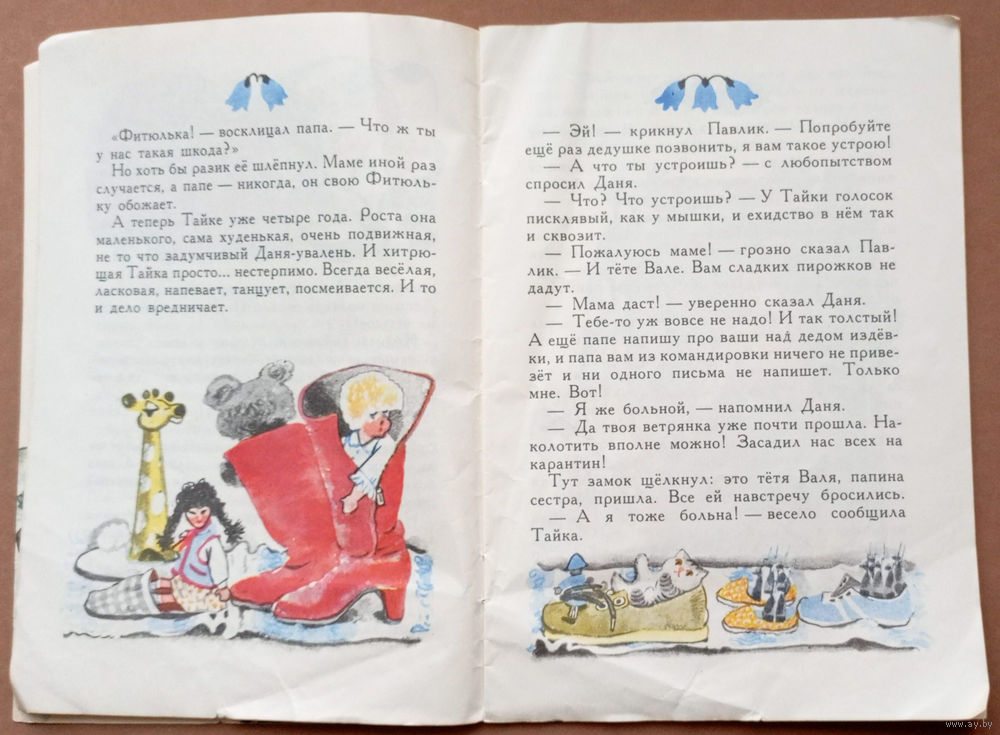 «Фитюлька! — восклицал папа. — Что ж ты
у нас такая шкода?»
Но хоть бы разик её шлёпнул. Маме иной раз
случается, а папе — никогда, он свою Фитюль-
ку обожает.
А теперь Тайке уже четыре года. Роста она
маленького, сама худенькая, очень подвижная,
не то что задумчивый Даня-увалень. И хитрю-
щая Тайка просто... нестерпимо. Всегда весёлая,
ласковая, напевает, танцует, посмеивается. И то
и дело вредничает.
— Эй! — крикнул Павлик. — Попробуйте
ещё раз дедушке позвонить, я вам такое устрою!
— А что ты устроишь? — с любопытством
спросил Даня.
— Что? Что устроишь? — У Тайки голосок
писклявый, как у мышки, и ехидство в нём так
и сквозит.
— Пожалуюсь маме! — грозно сказал Пав-
лик. — И тёте Вале. Вам сладких пирожков не
дадут.
— Мама даст! — уверенно сказал Даня.
— Тебе-то уж вовсе не надо! И так толстый!
А ещё папе напишу про ваши над дедом издёв-
ки, и папа вам из командировки ничего не приве-
зёт и ни одного письма не напишет. Только
мне. Вот!
— Я же больной, — напомнил Даня.
— Да твоя ветрянка уже почти прошла. На-
колотить вполне можно! Засадил нас всех на
карантин!
Тут замок щёлкнул: это тётя Валя, папина
сестра, пришла. Все ей навстречу бросились.
— А я тоже больна! — весело сообщила
Тайка.
www.ay.by